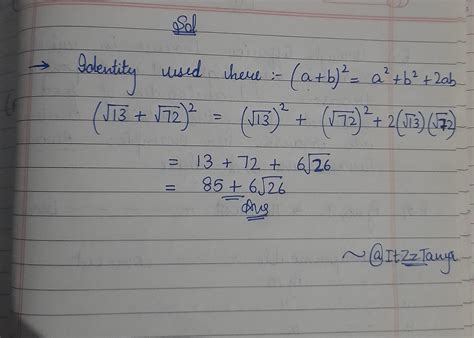 Sol
→ Identity used here :- (a+b)² = a² + b² + 2ab
(√13 + √72)² = (√13)² + (√72)² + 2(√13)(√72)
= 13 + 72 + 6√26
= 85 + 6√26
Ans
~ @ItZzTanya